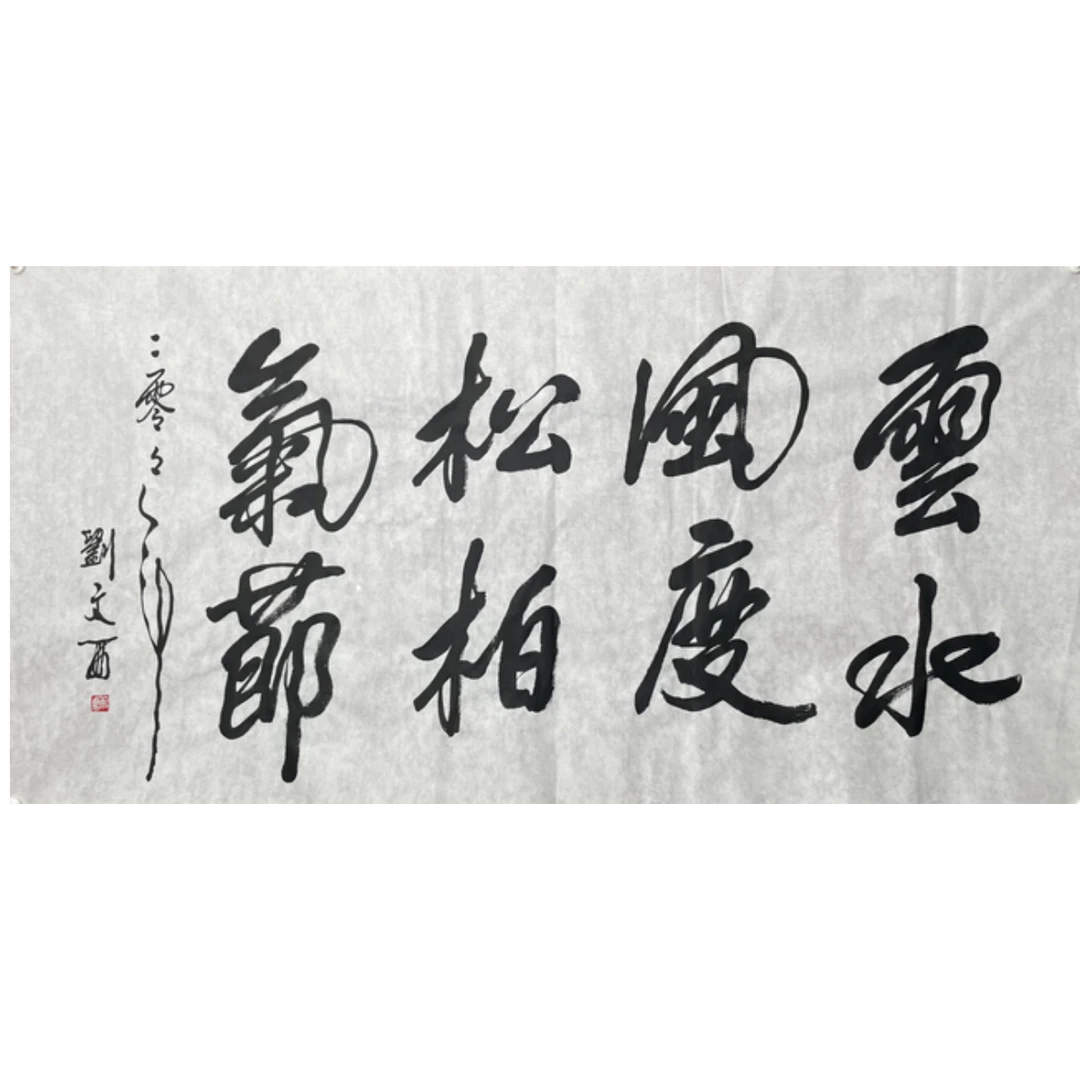 雲水
風度
松柏
氣節
二零二二年
劉文酉